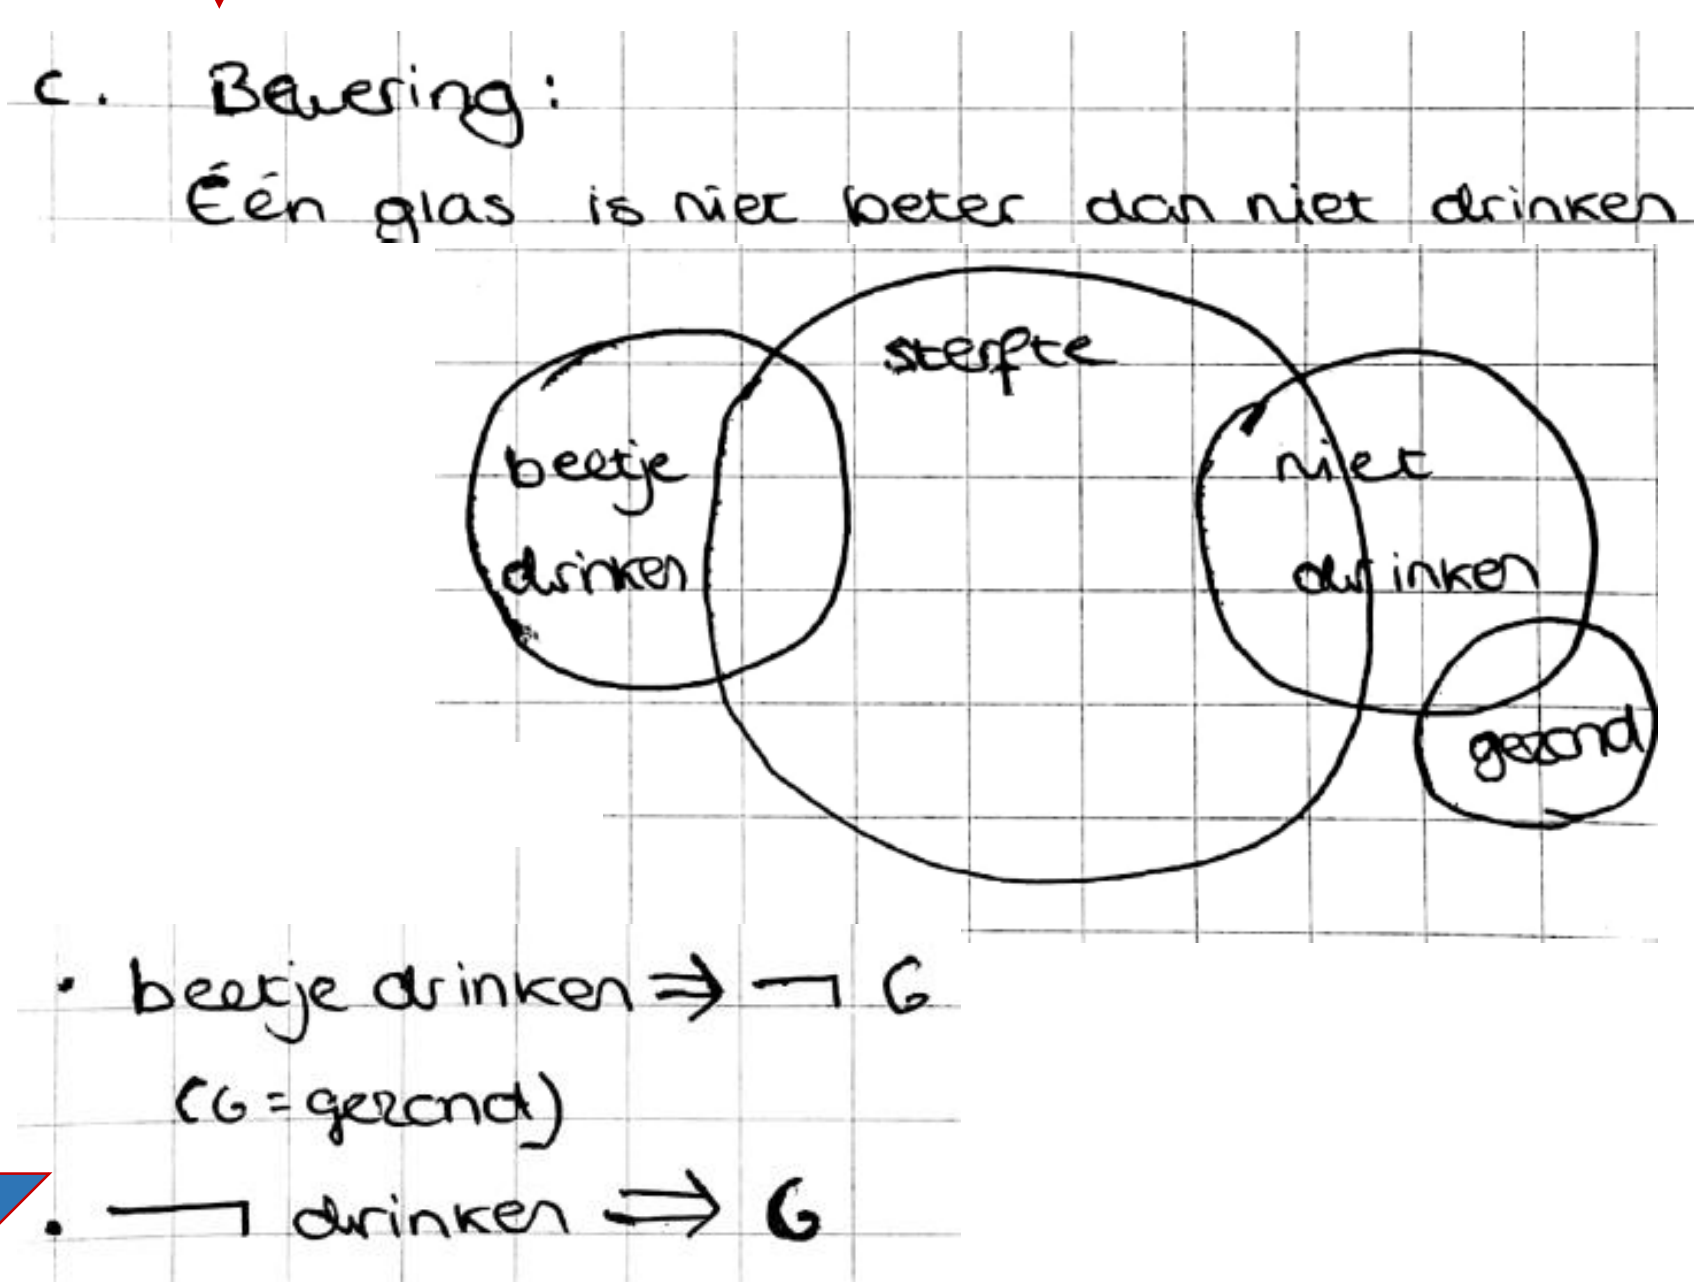 c. Bewering:
Één glas is niet beter dan niet drinken
sterfte
beetje
drinken
niet
drinken
gezond
• beetje drinken ⇒ ¬ G
(G = gezond)
• ¬ drinken ⇒ G